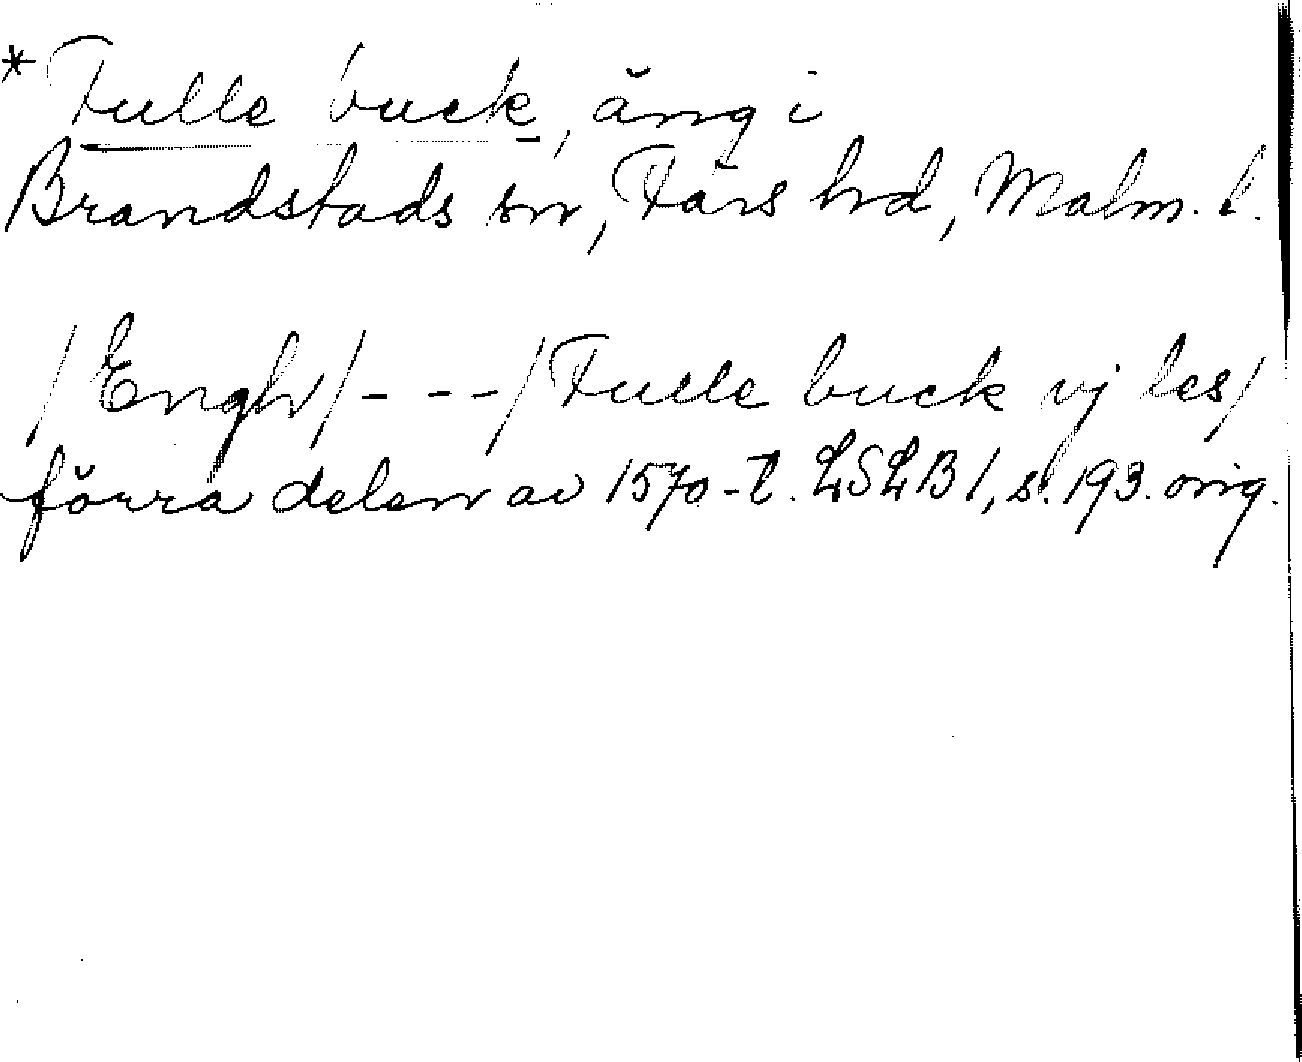 * Fulle buck, äng i
Brandstads sn, Färs hd, Malm. l.
/Engh/ - - - /Fulle buck vj les/
förra delen av 1570-t. LSLB 1, s. 193. orig.